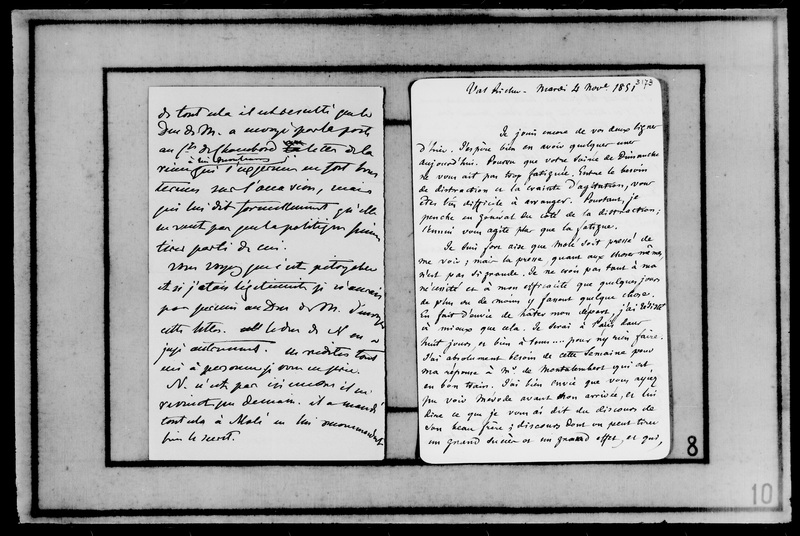 de tout cela il est resulté que le
Duc de N. a envoyé par la poste
au Cte de Chambord la lettre de la
reine qui s'exprime en fort bons
termes sur l'union, mais
qui lui dit formellement qu'elle
ne veut pas que la politique puisse
tirer parti de ceci.
Vous voyez que c'est pitoyable
et si j'étais légitimiste je n'aurais
pas permis au Duc de N. d'envoyer
cette lettre. Le duc de N en a
jugé autrement. Ne redites tout
ceci à personne je vous en prie.
N. n'est pas ici encore il ne
revient que demain. il a mandé
tout cela à Molé en lui recommandant
bien le secret.
Val Richer - Mardi 4 Nov. 1851
3173
Je jouis encore de vos deux lignes
d'hier. J'espère bien en avoir quelques unes
aujourd'hui. Pourvu que votre soirée de Dimanche
ne vous ait pas trop fatiguée. Entre le besoin
de distraction et la crainte d'agitation, vous
êtes très difficile à arranger. Pourtant, je
penche en général du côté de la distraction;
l'ennui vous agite plus que la fatigue.
Je suis fort aise que Molé soit pressé de
me voir; mais la presse, quant aux choses mêmes,
n'est pas si grande. Je ne crois pas tant à ma
nécessité et à mon efficacité que quelques jours
de plus ou de moins y fassent quelque chose.
En fait d'envie de hâter mon départ, j'ai résisté
à mieux que cela. Je serai à Paris dans
huit jours, et bien à tems... pour n'y rien faire.
J'ai absolument besoin de cette semaine pour
ma réponse à Mr de Montalembert qui est
en bon train. J'ai bien envie que vous ayez
pu voir Mérode avant mon arrivée, et lui
dire ce que je vous ai dit du discours de
son beau frère; discours dont on peut tirer
un grand succès et un grand effet, et qui,
8
10